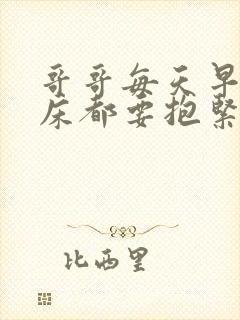 哥哥每天早
床都要抱緊
比西里